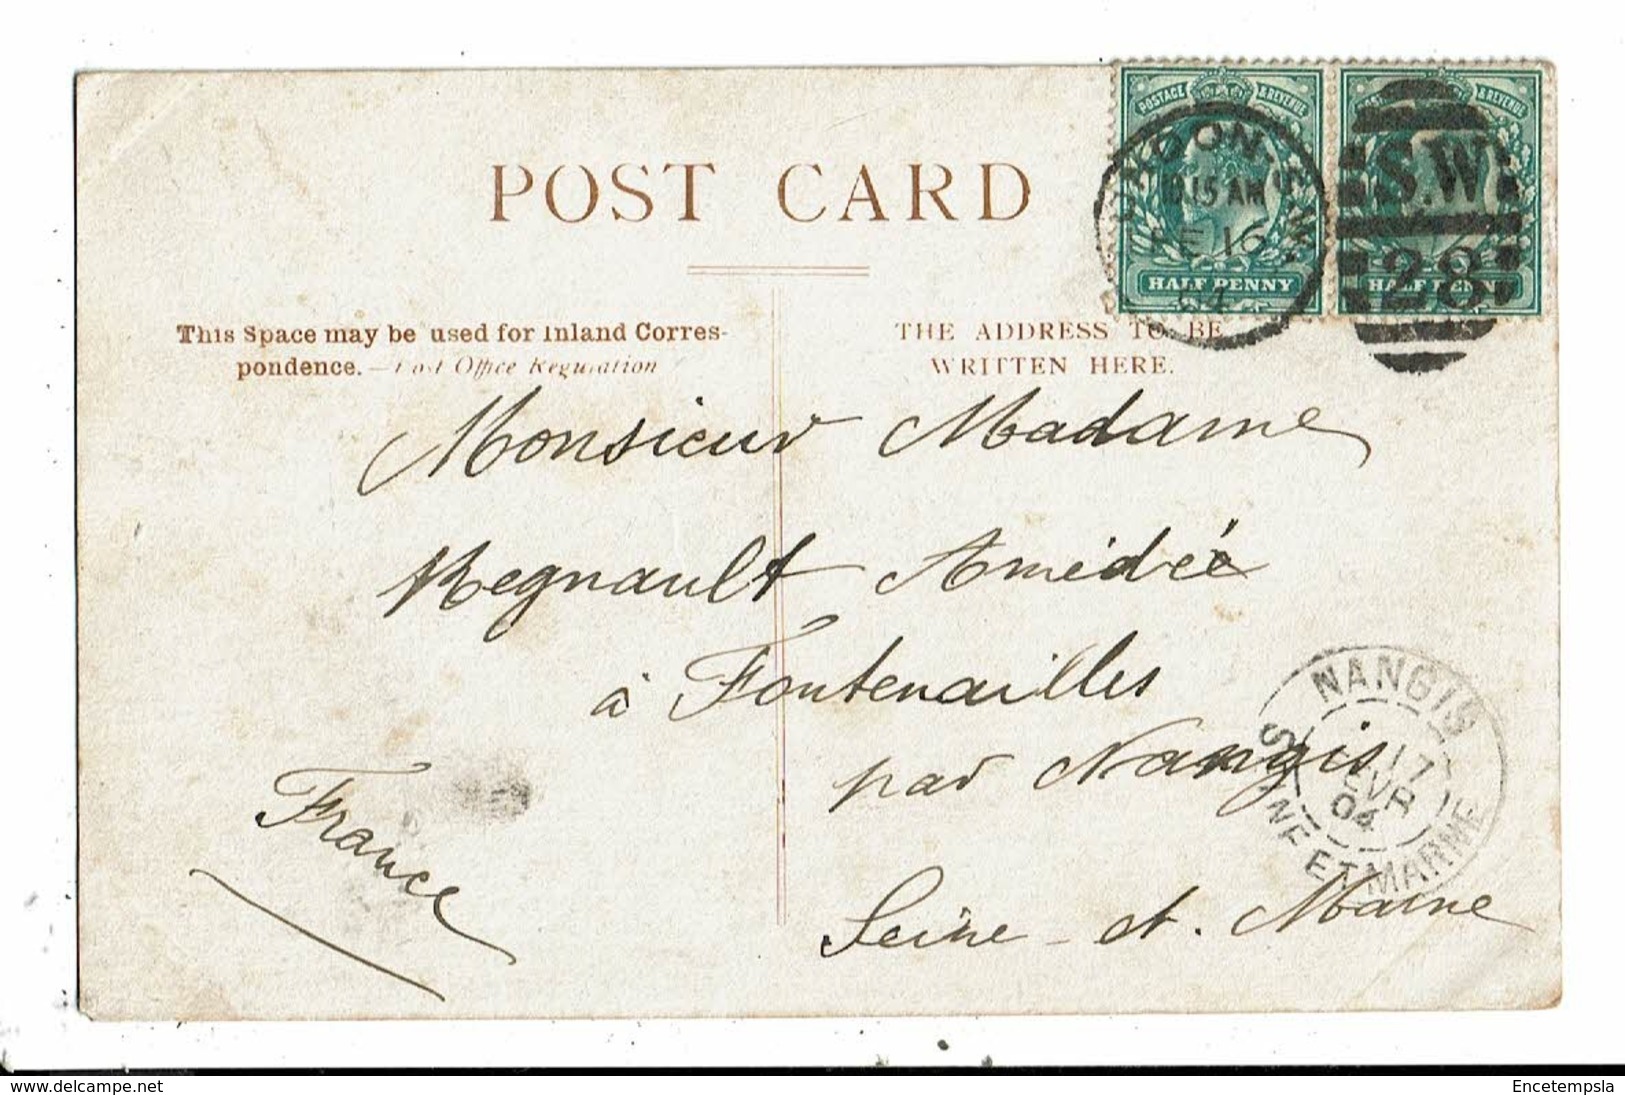 POST CARD
POSTAGE & REVENUE
HALF PENNY
POSTAGE & REVENUE
HALF PENNY
LONDON. S.W.
10.15 AM
FE 16
04
S.W.
28
This Space may be used for Inland Corres-
pondence. — Post Office Regulation
THE ADDRESS TO BE
WRITTEN HERE.
Monsieur Madame
Regnault Amédée
à Fontenailles
par Nangis
Seine - et - Marne
France
NANGIS
17
04
SEINE ET MARNE
www.delcampe.net
Encetempsla